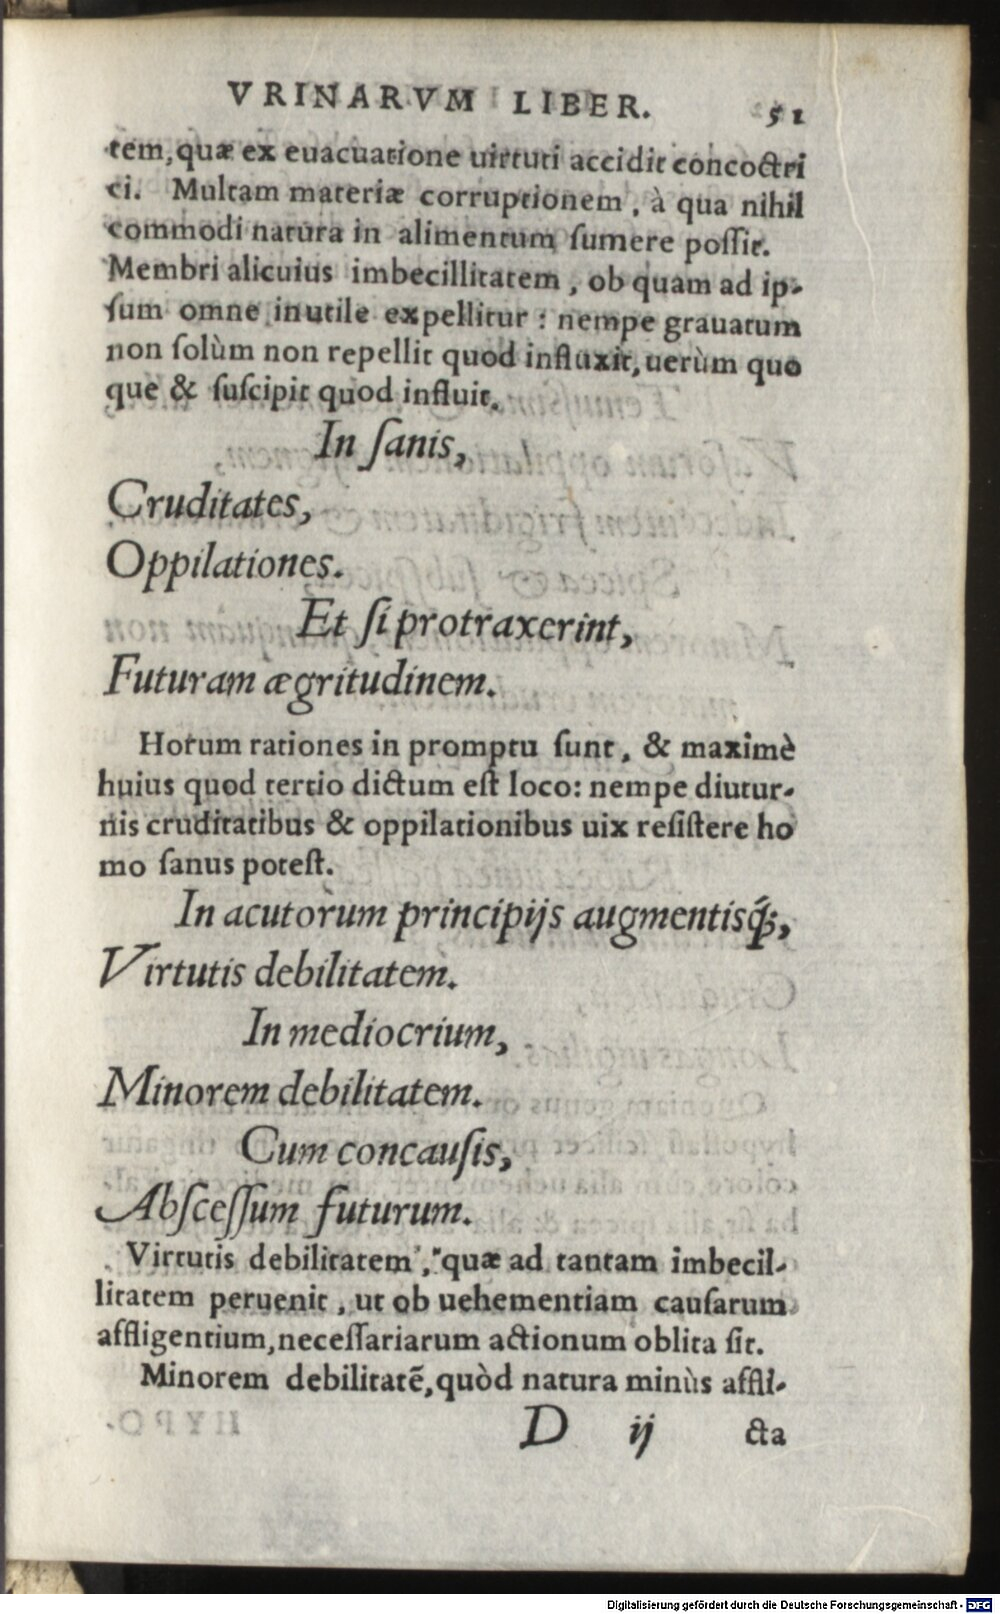 VRINARVM LIBER. 51
tem, quæ ex euacuatione uirtuti accidit concoctri
ci. Multam materiæ corruptionem, à qua nihil
commodi natura in alimentum ſumere poſſit.
Membri alicuius imbecillitatem, ob quam ad ip-
ſum omne inutile expellitur: nempe grauatum
non ſolùm non repellit quod influxit, uerùm quo
que & ſuſcipit quod influit.
In ſanis,
Cruditates,
Oppilationes.
Et ſi protraxerint,
Futuram ægritudinem.
Horum rationes in promptu ſunt, & maximè
huius quod tertio dictum eſt loco: nempe diutur-
nis cruditatibus & oppilationibus uix reſiſtere ho
mo ſanus poteſt.
In acutorum principijs augmentisq́;,
Virtutis debilitatem.
In mediocrium,
Minorem debilitatem.
Cum concauſis,
Abſceſſum futurum.
Virtutis debilitatem, quæ ad tantam imbecil-
litatem peruenit, ut ob uehementiam cauſarum
affligentium, neceſſariarum actionum oblita ſit.
Minorem debilitatẽ, quòd natura minùs affli-
D ij cta
Digitalisierung gefördert durch die Deutsche Forschungsgemeinschaft - DFG